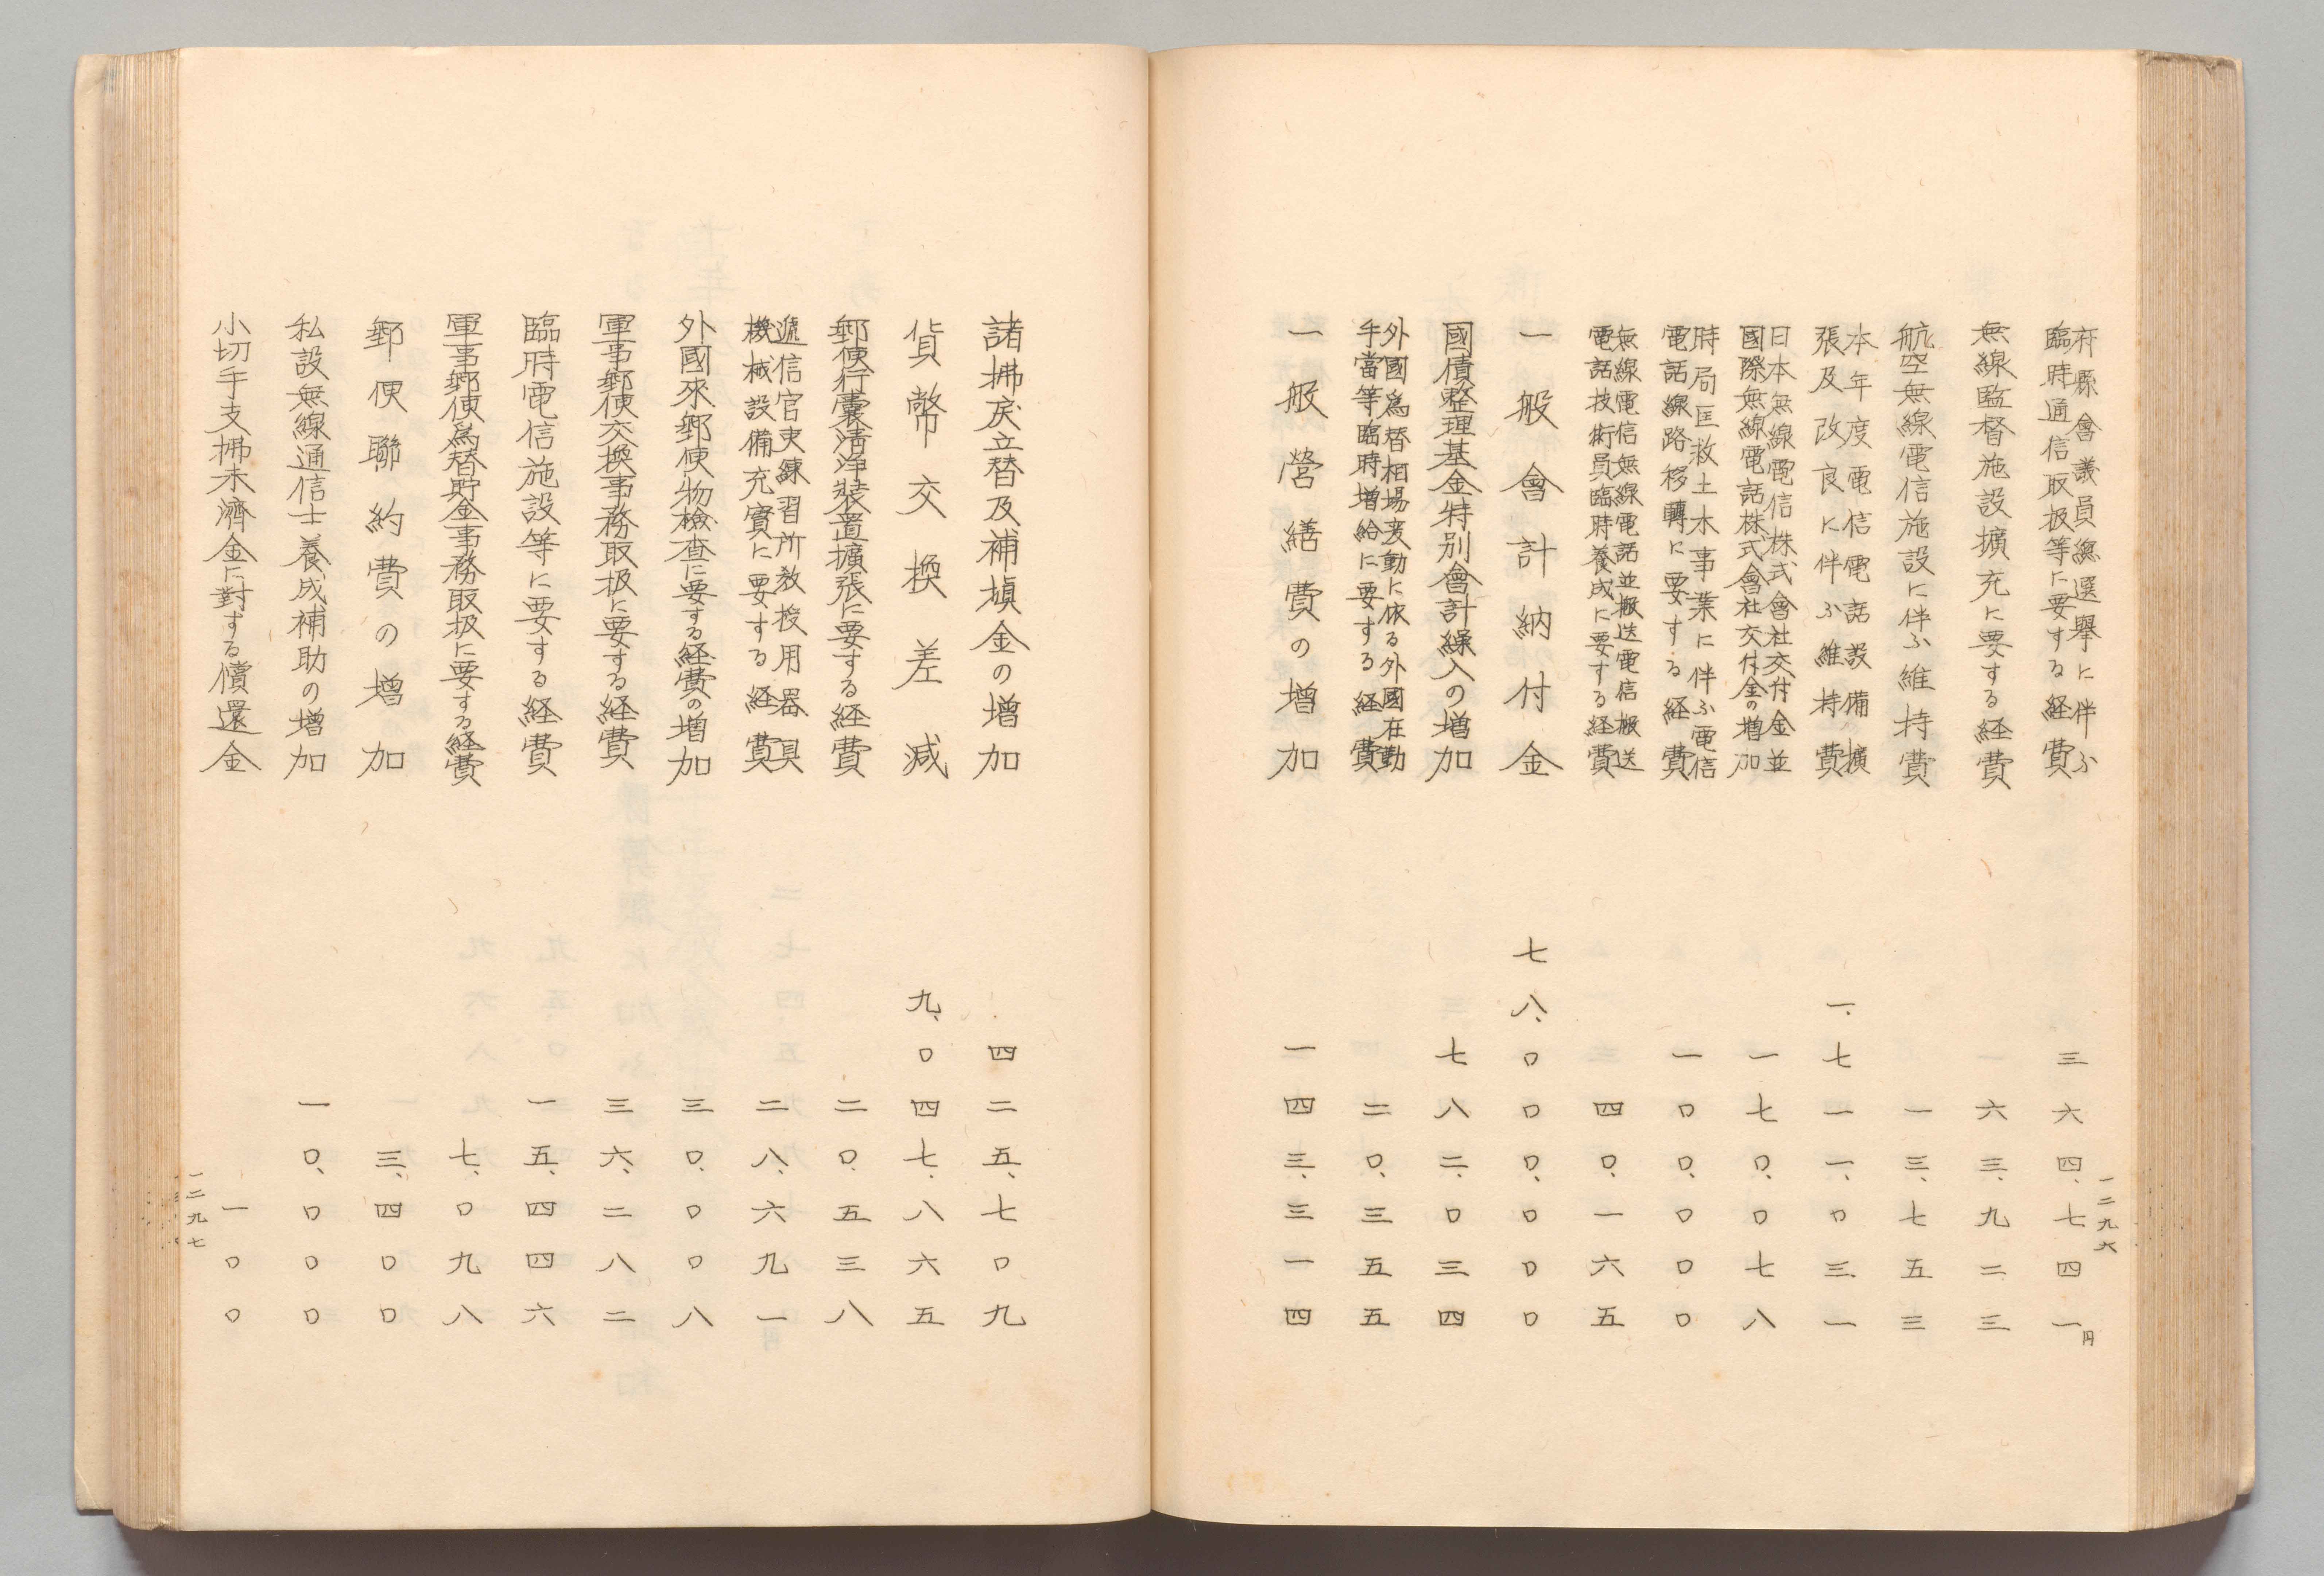 一二九六
府縣會議員總選擧に伴ふ
臨時通信取扱等に要する経費 三六四、七四一円
無線監督施設擴充に要する経費 一六三、九二三
航空無線電信施設に伴ふ維持費 一三、七五三
本年度電信電話設備擴
張及改良に伴ふ維持費 一、七一一、〇三一
日本無線電信株式會社交付金並
國際無線電話株式會社交付金の增加 一七〇、〇七八
時局匡救土木事業に伴ふ電信
電話線路移轉に要する経費 一〇〇、〇〇〇
無線電信無線電話並搬送電信搬送
電話技術員臨時養成に要する経費 四〇、一六五
一般會計納付金 七八、〇〇〇、〇〇〇
國債整理基金特別會計繰入の增加 七八二、〇三四
外國爲替相場変動に依る外國在勤
手當等臨時增給に要する経費 二〇、三五五
一般營繕費の增加 一四三、三一四
諸拂戻立替及補塡金の增加 四二五、七〇九
貨幣交換差減 九、〇四七、八六五
郵便行嚢淸浄裝置擴張に要する経費 二〇、五三八
遞信官吏練習所敎授用器具
機械設備充實に要する経費 二八、六九一
外國來郵便物檢査に要する経費の增加 三〇、〇〇八
軍事郵便交換事務取扱に要する経費 三六、二八二
臨時電信施設等に要する経費 一五、四四六
軍事郵便爲替貯金事務取扱に要する経費 七、〇九八
郵便聯約費の增加 三、四〇〇
私設無線通信士養成補助の增加 一〇、〇〇〇
小切手支拂未濟金に對する償還金 一〇〇
一二九七